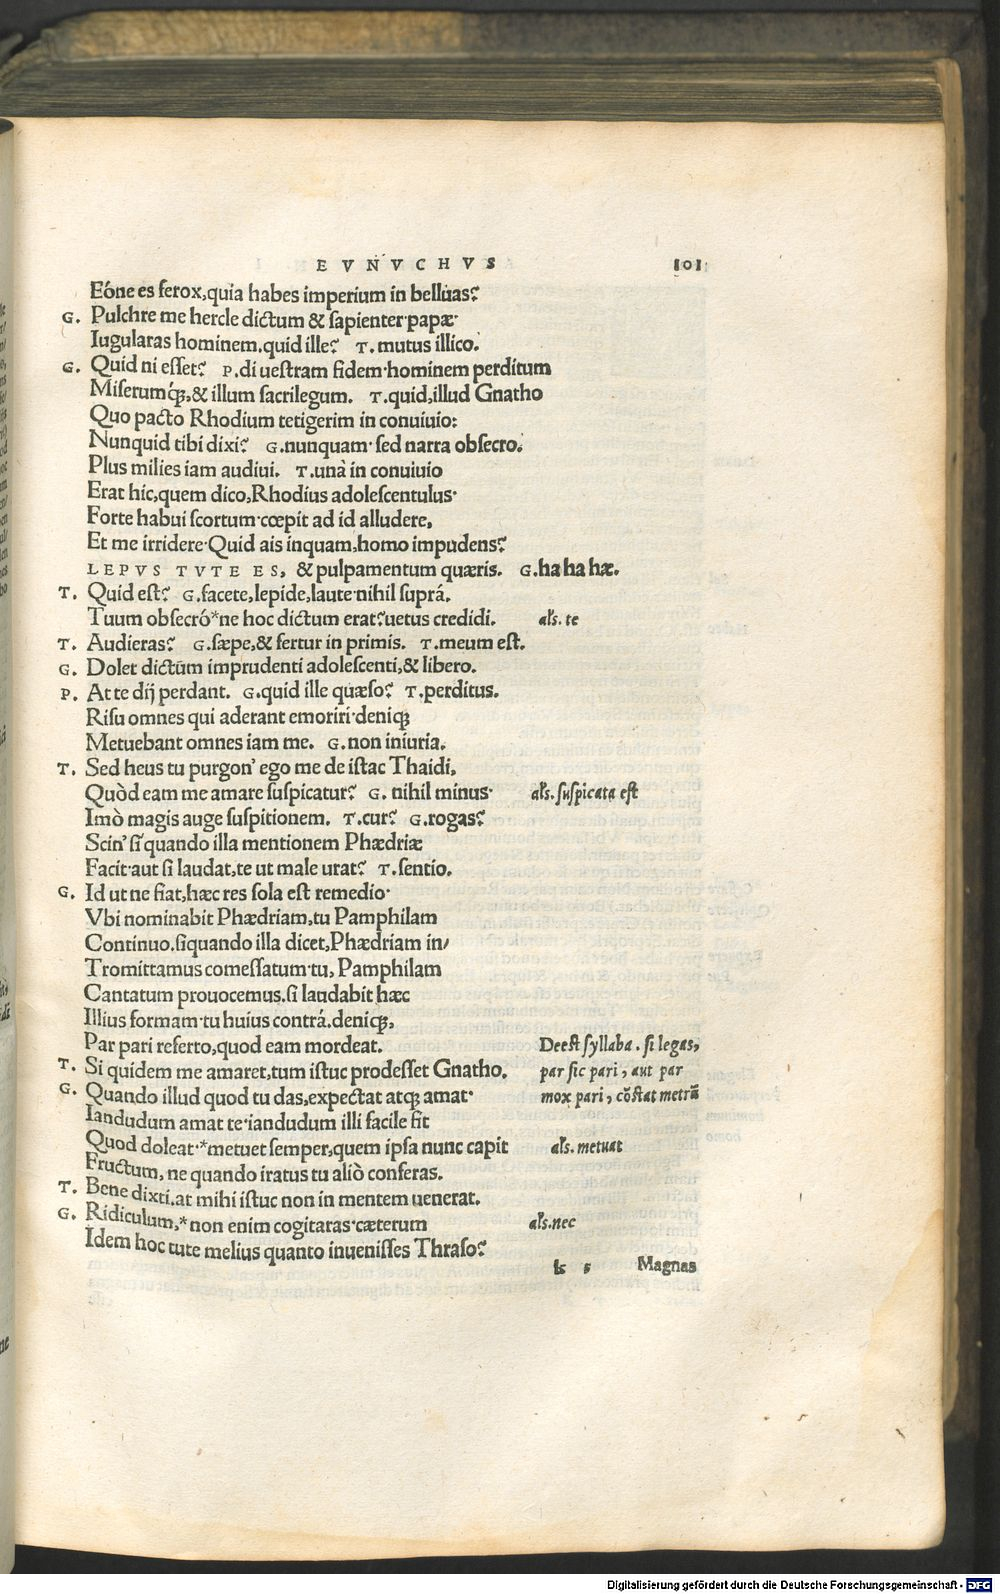 EVNVCHVS 101
Eóne es ferox,quia habes imperium in belluas?
G. Pulchre me hercle dictum & sapienter·papæ·
Iugularas hominem.quid ille? T.mutus illico.
G. Quid ni esset? P.di uestram fidem·hominem perditum
Miserumq́;,& illum sacrilegum. T.quid,illud Gnatho
Quo pacto Rhodium tetigerim in conuiuio:
Nunquid tibi dixi? G.nunquam·sed narra obsecro.
Plus milies iam audiui. T.unà in conuiuio
Erat hic,quem dico,Rhodius adolescentulus·
Forte habui scortum·cœpit ad id alludere,
Et me irridere·Quid ais inquam,homo impudens?
LEPVS TVTE ES, & pulpamentum quæris. G.ha ha hæ.
T. Quid est? G.facete,lepide,laute·nihil suprá.
Tuum obsecró*ne hoc dictum erat?uetus credidi. als. te
T. Audieras? G.sæpe,& fertur in primis. T.meum est.
G. Dolet dictũm imprudenti adolescenti,& libero.
P. At te dij perdant. G.quid ille quæso? T.perditus.
Risu omnes qui aderant emoriri·deniq;
Metuebant omnes iam me. G.non iniuria.
T. Sed heus tu purgon' ego me de istac Thaidi,
Quòd eam me amare suspicatur? G. nihil minus· als. suspicata est
Imò magis auge suspitionem. T.cur? G.rogas?
Scin' si quando illa mentionem Phædriæ
Facit·aut si laudat,te ut male urat? T.sentio.
G. Id ut ne fiat,hæc res sola est remedio·
Vbi nominabit Phædriam,tu Pamphilam
Continuo.siquando illa dicet,Phædriam in/
Tromittamus comessatum·tu, Pamphilam
Cantatum prouocemus.si laudabit hæc
Illius formam·tu huius contrá.deniq;,
Par pari referto,quod eam mordeat. Deest syllaba. si legas,
T. Si quidem me amaret,tum istuc prodesset Gnatho. par sic pari, aut par
G. Quando illud quod tu das,expectat atq; amat· mox pari, cõstat metrũ
Iandudum amat te·iandudum illi facile fit
Quod doleat·*metuet semper,quem ipsa nunc capit als. metuat
Fructum, ne quando iratus tu aliò conferas.
T. Bene dixti.at mihi istuc non in mentem uenerat.
G. Ridiculum,* non enim cogitaras·cæterum als.nec
Idem hoc tute melius quanto inuenisses Thraso?
s Magnas
Digitalisierung gefördert durch die Deutsche Forschungsgemeinschaft - DFG